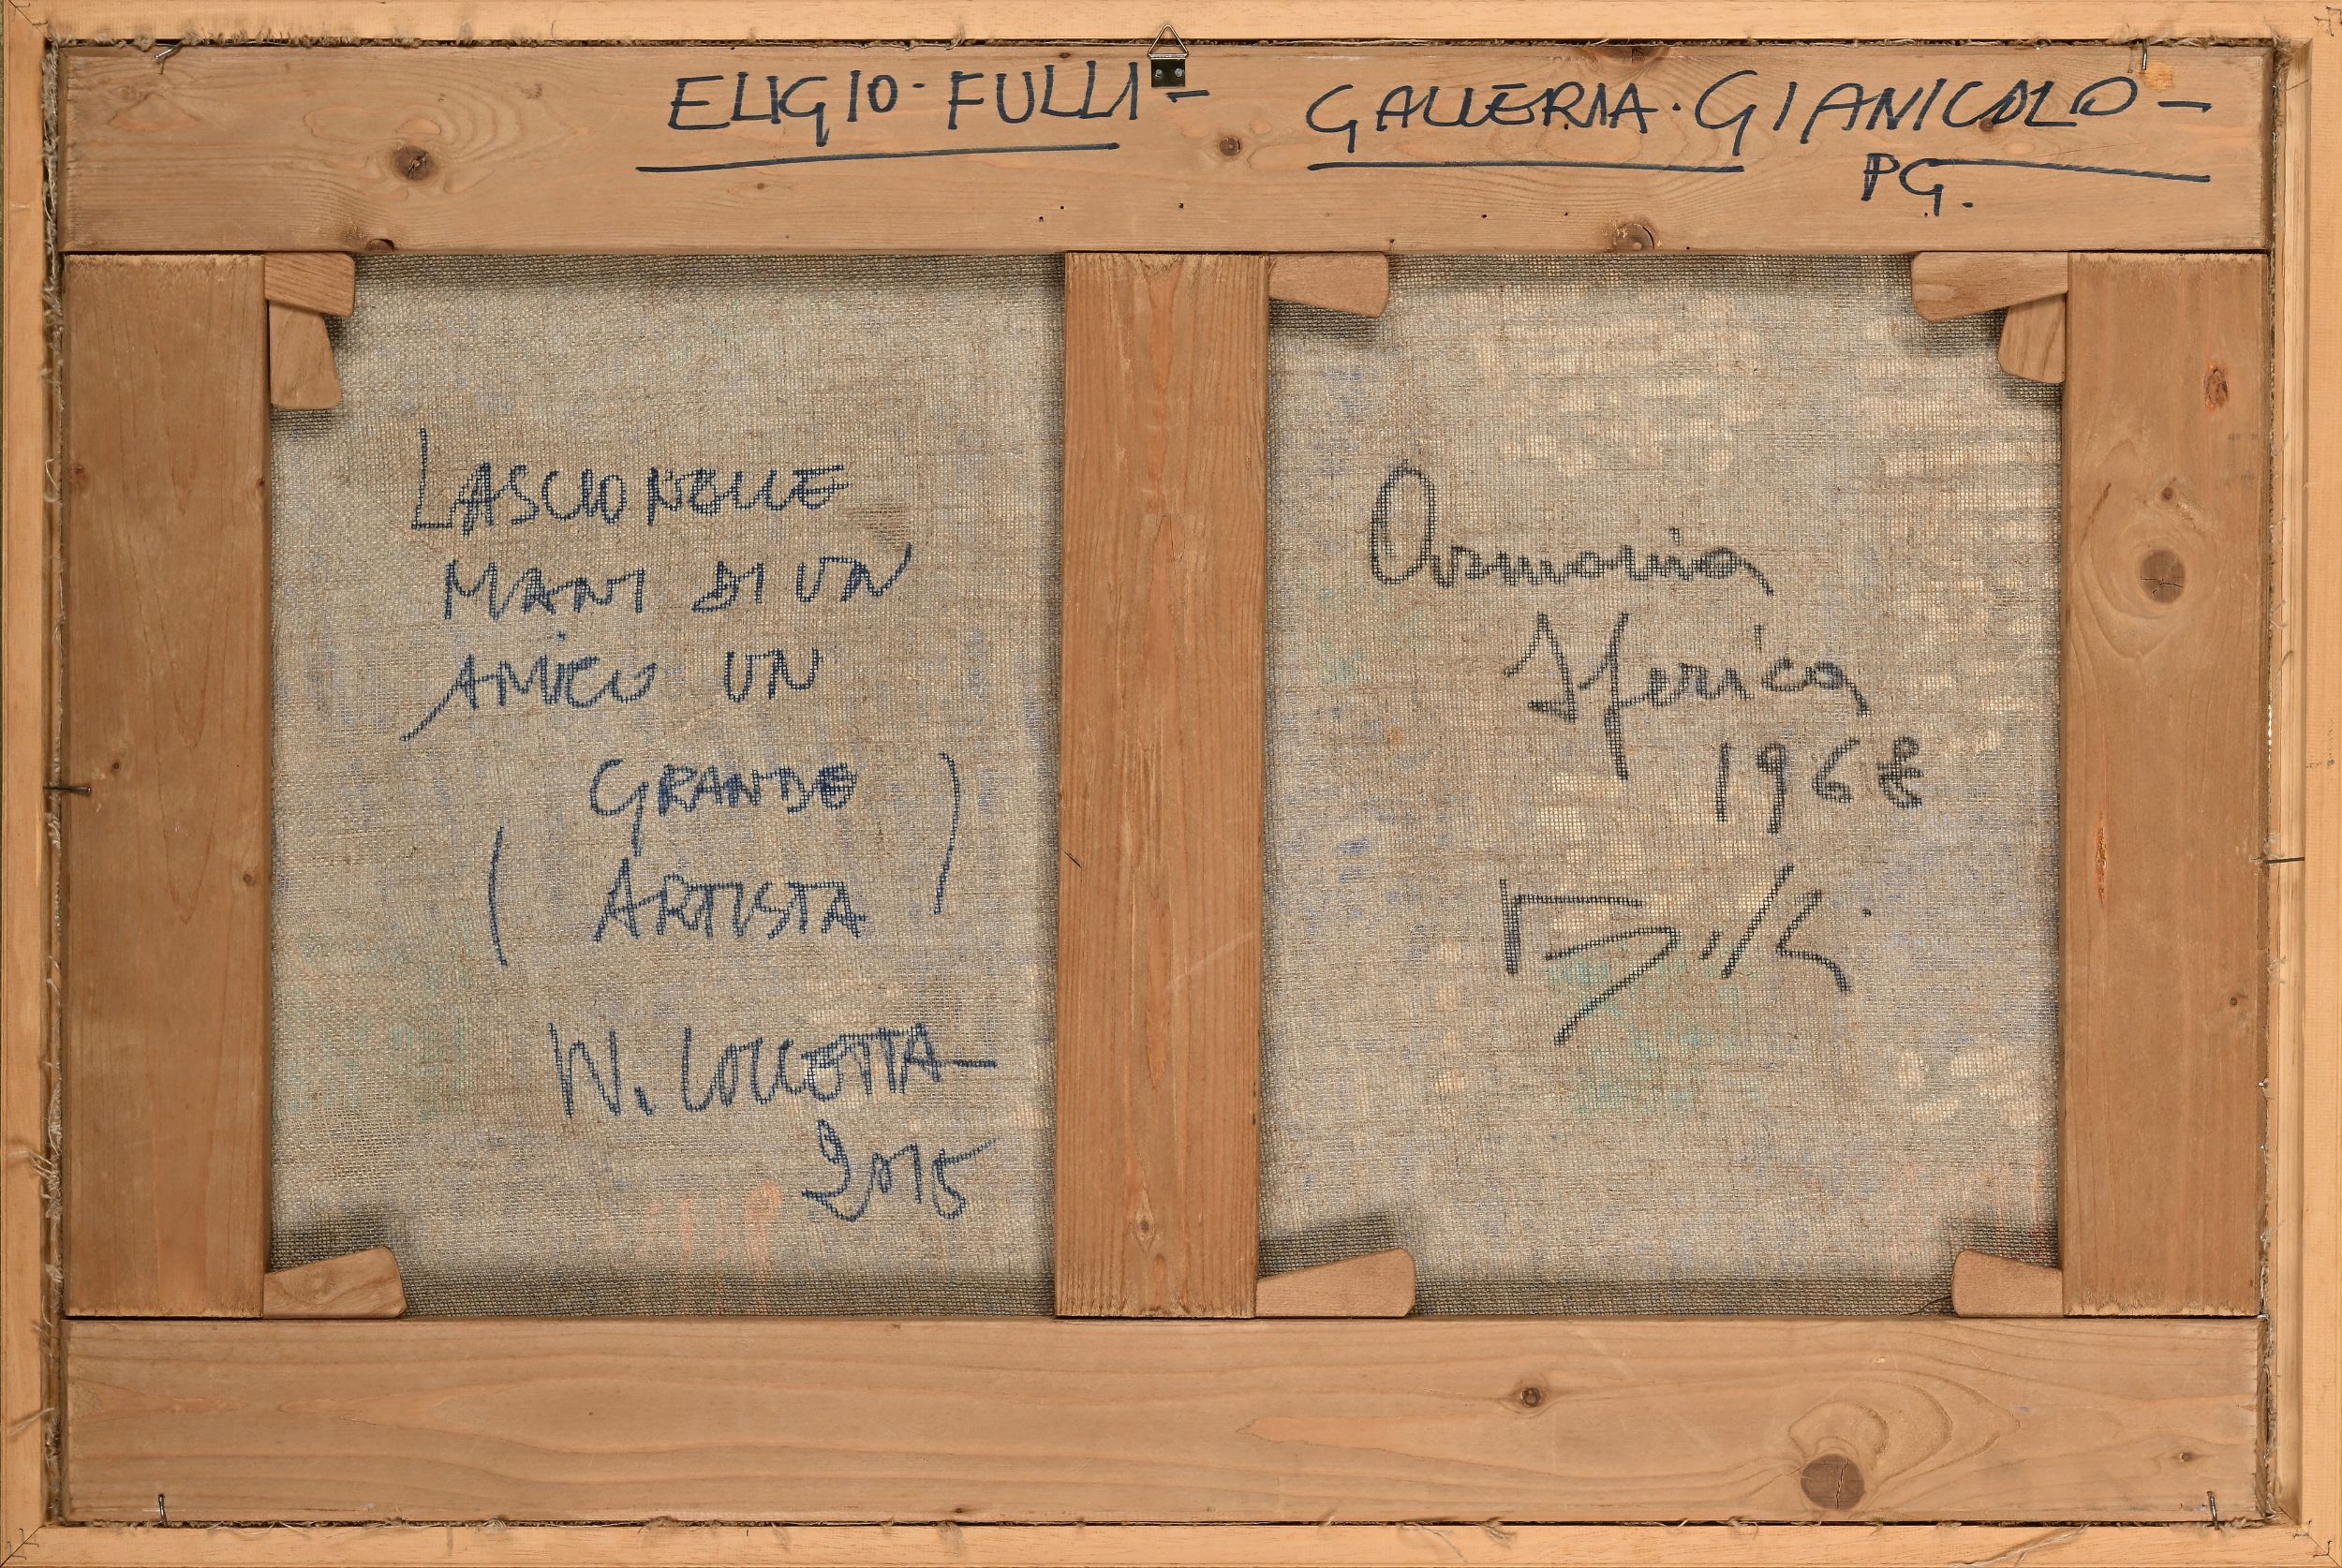 ELIGIO - FULLI -
GALLERIA · GIANICOLO -
PG.
LASCIO NELLE
MANI DI UN
AMICO UN
GRANDE
( ARTISTA )
Armonia
Sferica
196